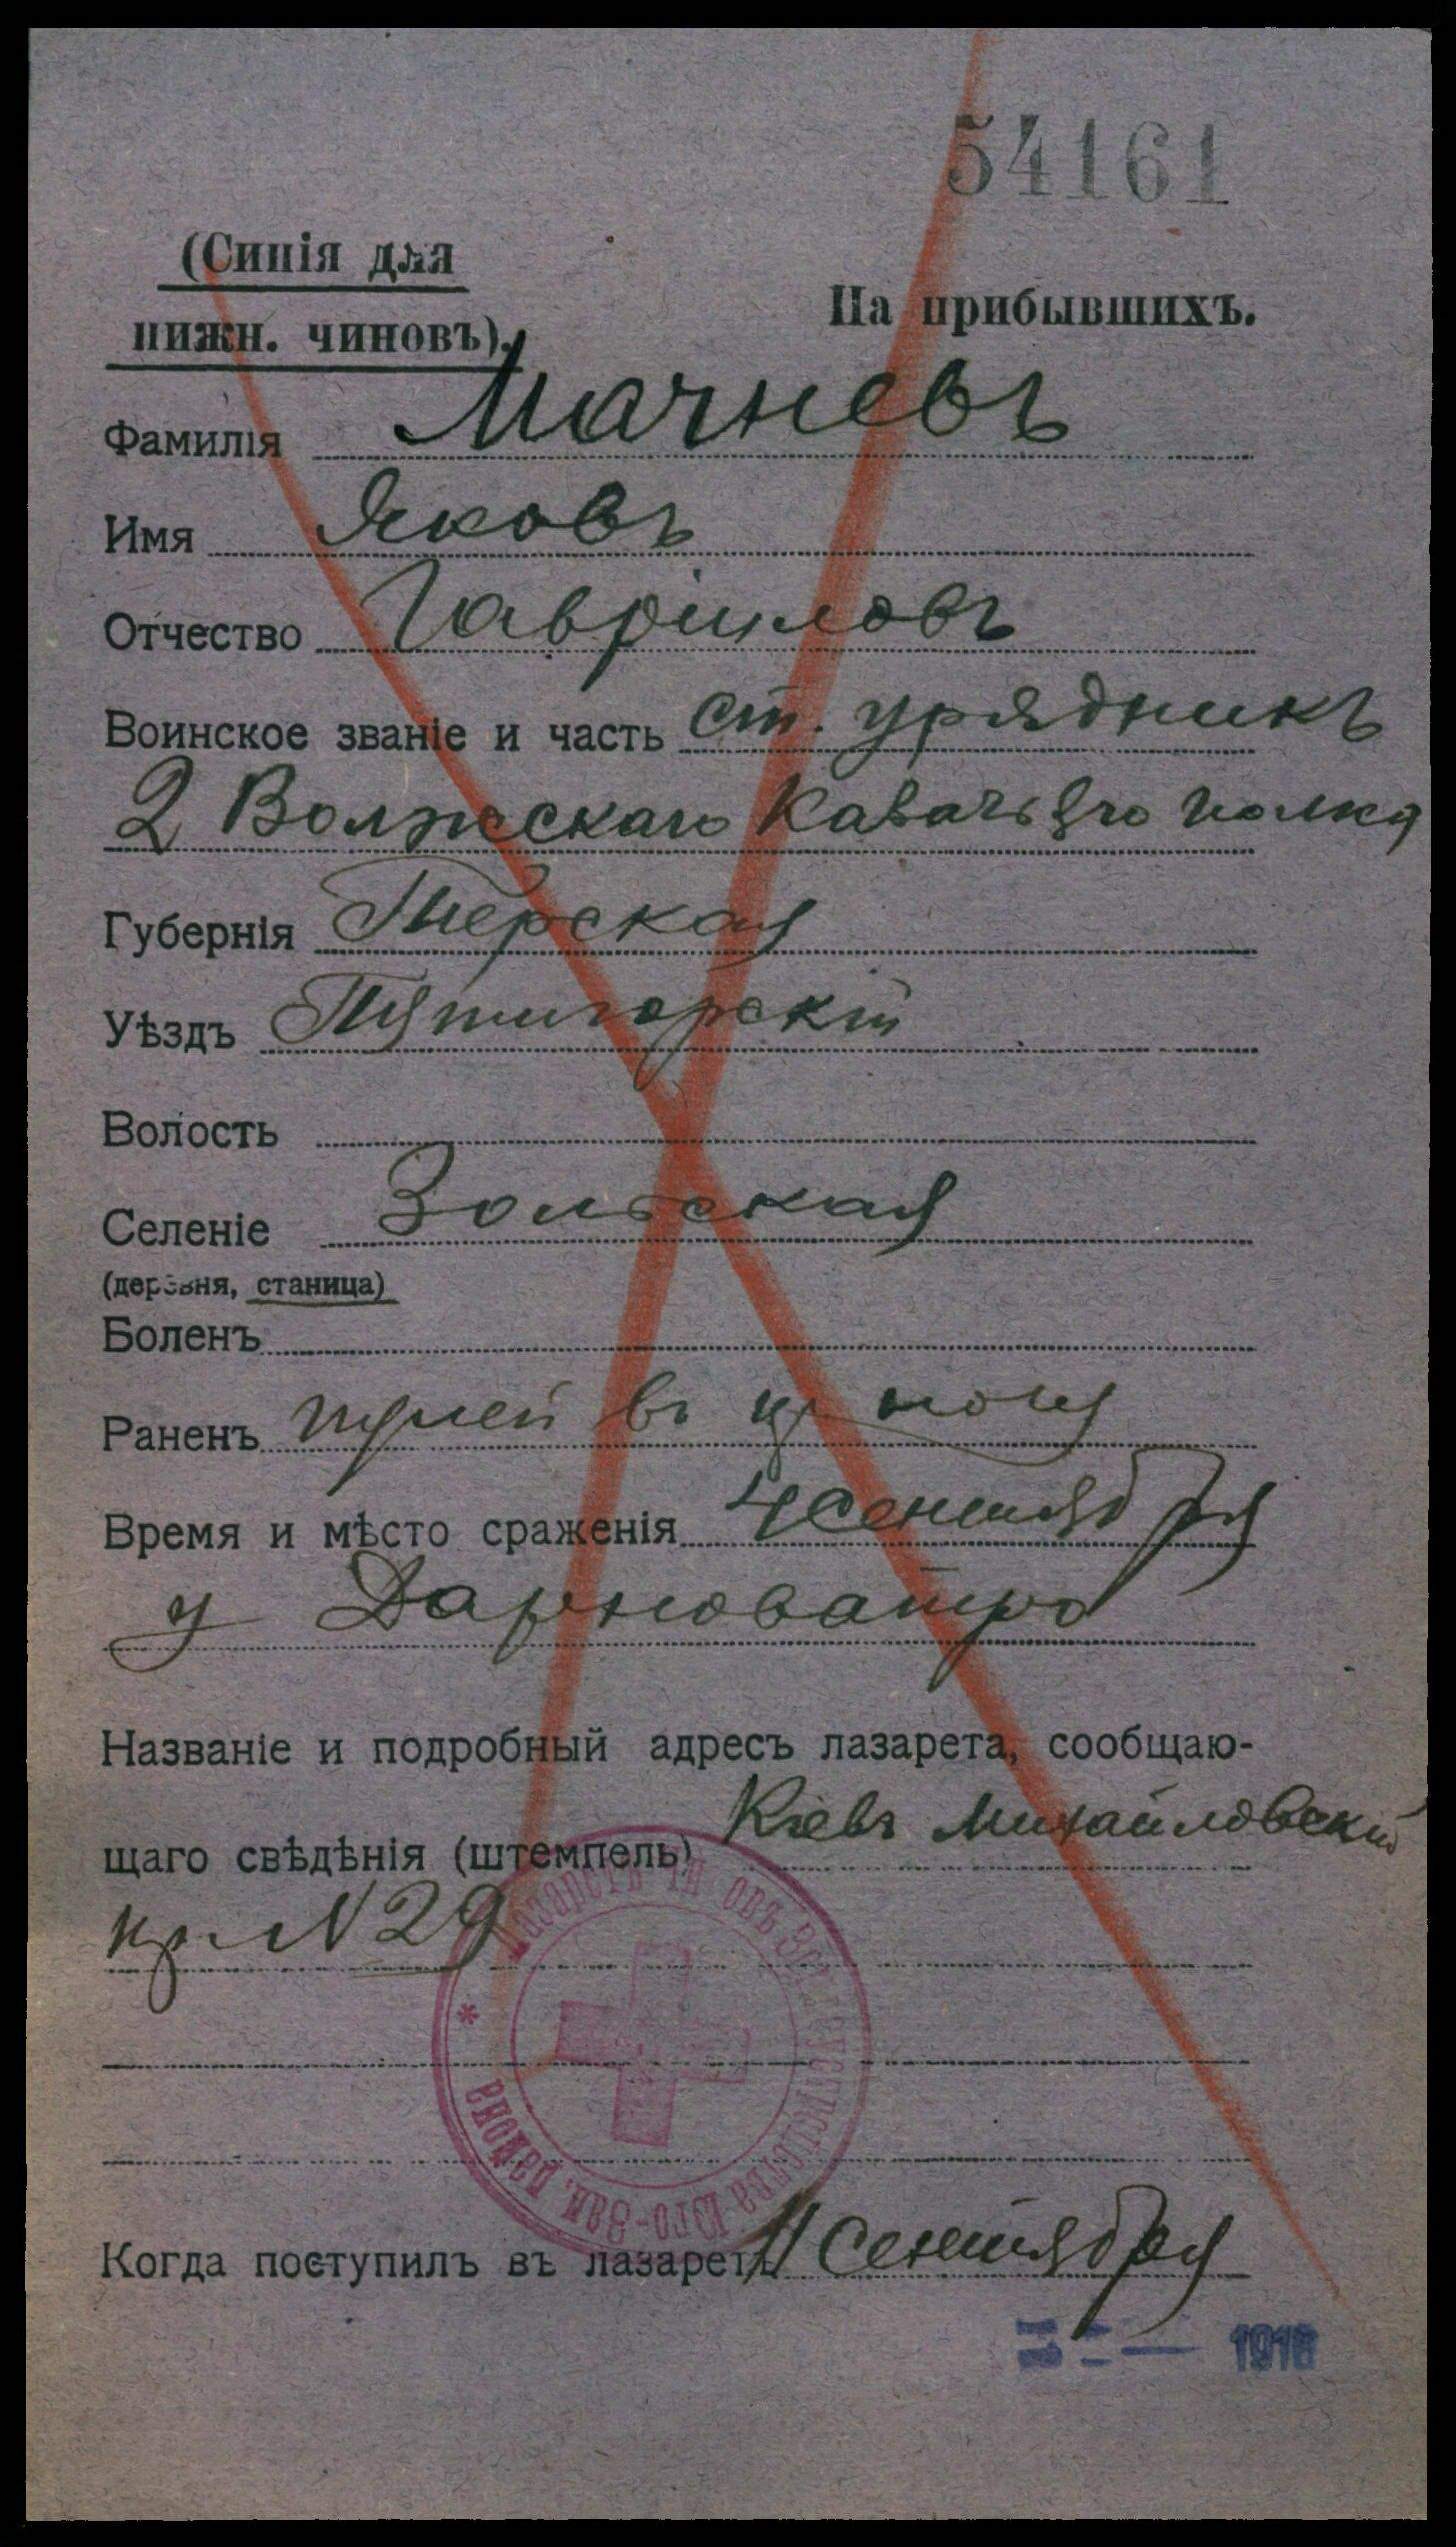 54161
(Синія для
нижн. чиновъ).
На прибывшихъ.
Фамилія Мачневъ
Имя Яковъ
Отчество Гавриловъ
Воинское званіе и часть ст. урядникъ
2 Волжскаго Казачьяго полка
Губернія Терская
Уѣздъ Пятигорскій
Волость
Селеніе Зольская
(деревня, станица)
Боленъ
Раненъ пулей въ ногу
Время и мѣсто сраженія 4 сентября
у
Названіе и подробный адресъ лазарета, сообщаю-
щаго свѣдѣнія (штемпель) Кіевъ Михайловскій
N 29
Лазаретъ Юго-Зап. раіона *
Когда поступилъ въ лазаретъ 11 Сентября
1916